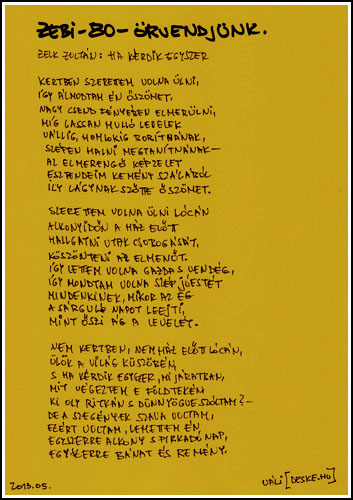 ZEBI-BO-ÖRVENDJÜNK.
ZELK ZOLTÁN: HA KÉRDIK EGYSZER
KERTBEN SZERETTEM VOLNA ÜLNI,
ÍGY ÁLMODTAM ÉN ŐSZÖMET,
NAGY CSEND FÉNYÉBEN ELMERÜLNI,
MÍG LASSAN HULLÓ LEVELEK
VÁLLIG, HOMLOKIG BORÍTANÁNAK,
SZÉPEN HALNI MEGTANÍTNÁNAK—
AZ ELMERENGŐ KÉPZELET
ESZTENDEIM KEMÉNY SZÁLÁRÓL
ILY LÁGYNAK SZŐTTE ŐSZÖMET.
SZERETTEM VOLNA ÜLNI LÓCÁN
ALKONYIDŐN A HÁZ ELŐTT
HALLGATNI UTAK CSOBOGÁSÁT,
KÖSZÖNTENI AZ ELMENŐT.
ÍGY LETTEM VOLNA GAZDAG VENDÉG,
ÍGY MONDTAM VOLNA SZÉP JÓESTÉT
MINDENKINEK, MIKOR AZ ÉG
A SÁRGULÓ NAPOT LEEJTI,
MINT ŐSZI ÁG A LEVELÉT.
NEM KERTBEN, NEM HÁZ ELŐTT LÓCÁN,
ÜLÖK A VILÁG KÜSZÖBÉN,
S HA KÉRDIK EGYSZER, MI JÁRATBAN,
MIT VÉGEZTEM E FÖLDTEKÉN
KI OLY RITKÁN S DÜNNYÖGVE SZÓLTAM?—
DE A SZEGÉNYEK SZAVA VOLTAM,
EZÉRT VOLTAM, LEHETTEM ÉN
EGYSZERRE ALKONY S PIRKADÓ NAP,
EGYSZERRE BÁNAT ÉS REMÉNY.
2013.05.
VÁLI [DESKE.HU]